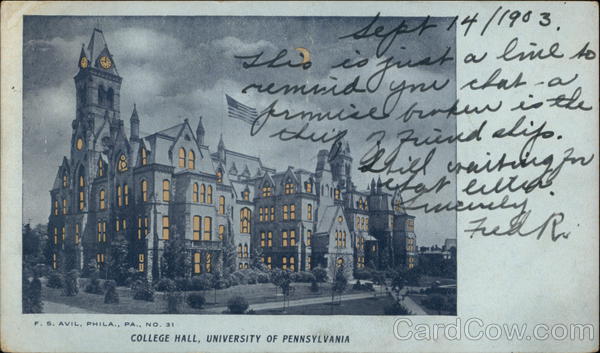 Sept 14/1903.
This is just a line to
remind you that a
promise broken is the
thief of friendship.
Still waiting for
that letter.
Sincerely,
Fred R.
F. S. AVIL, PHILA., PA., NO. 31
COLLEGE HALL, UNIVERSITY OF PENNSYLVANIA
CardCow.com